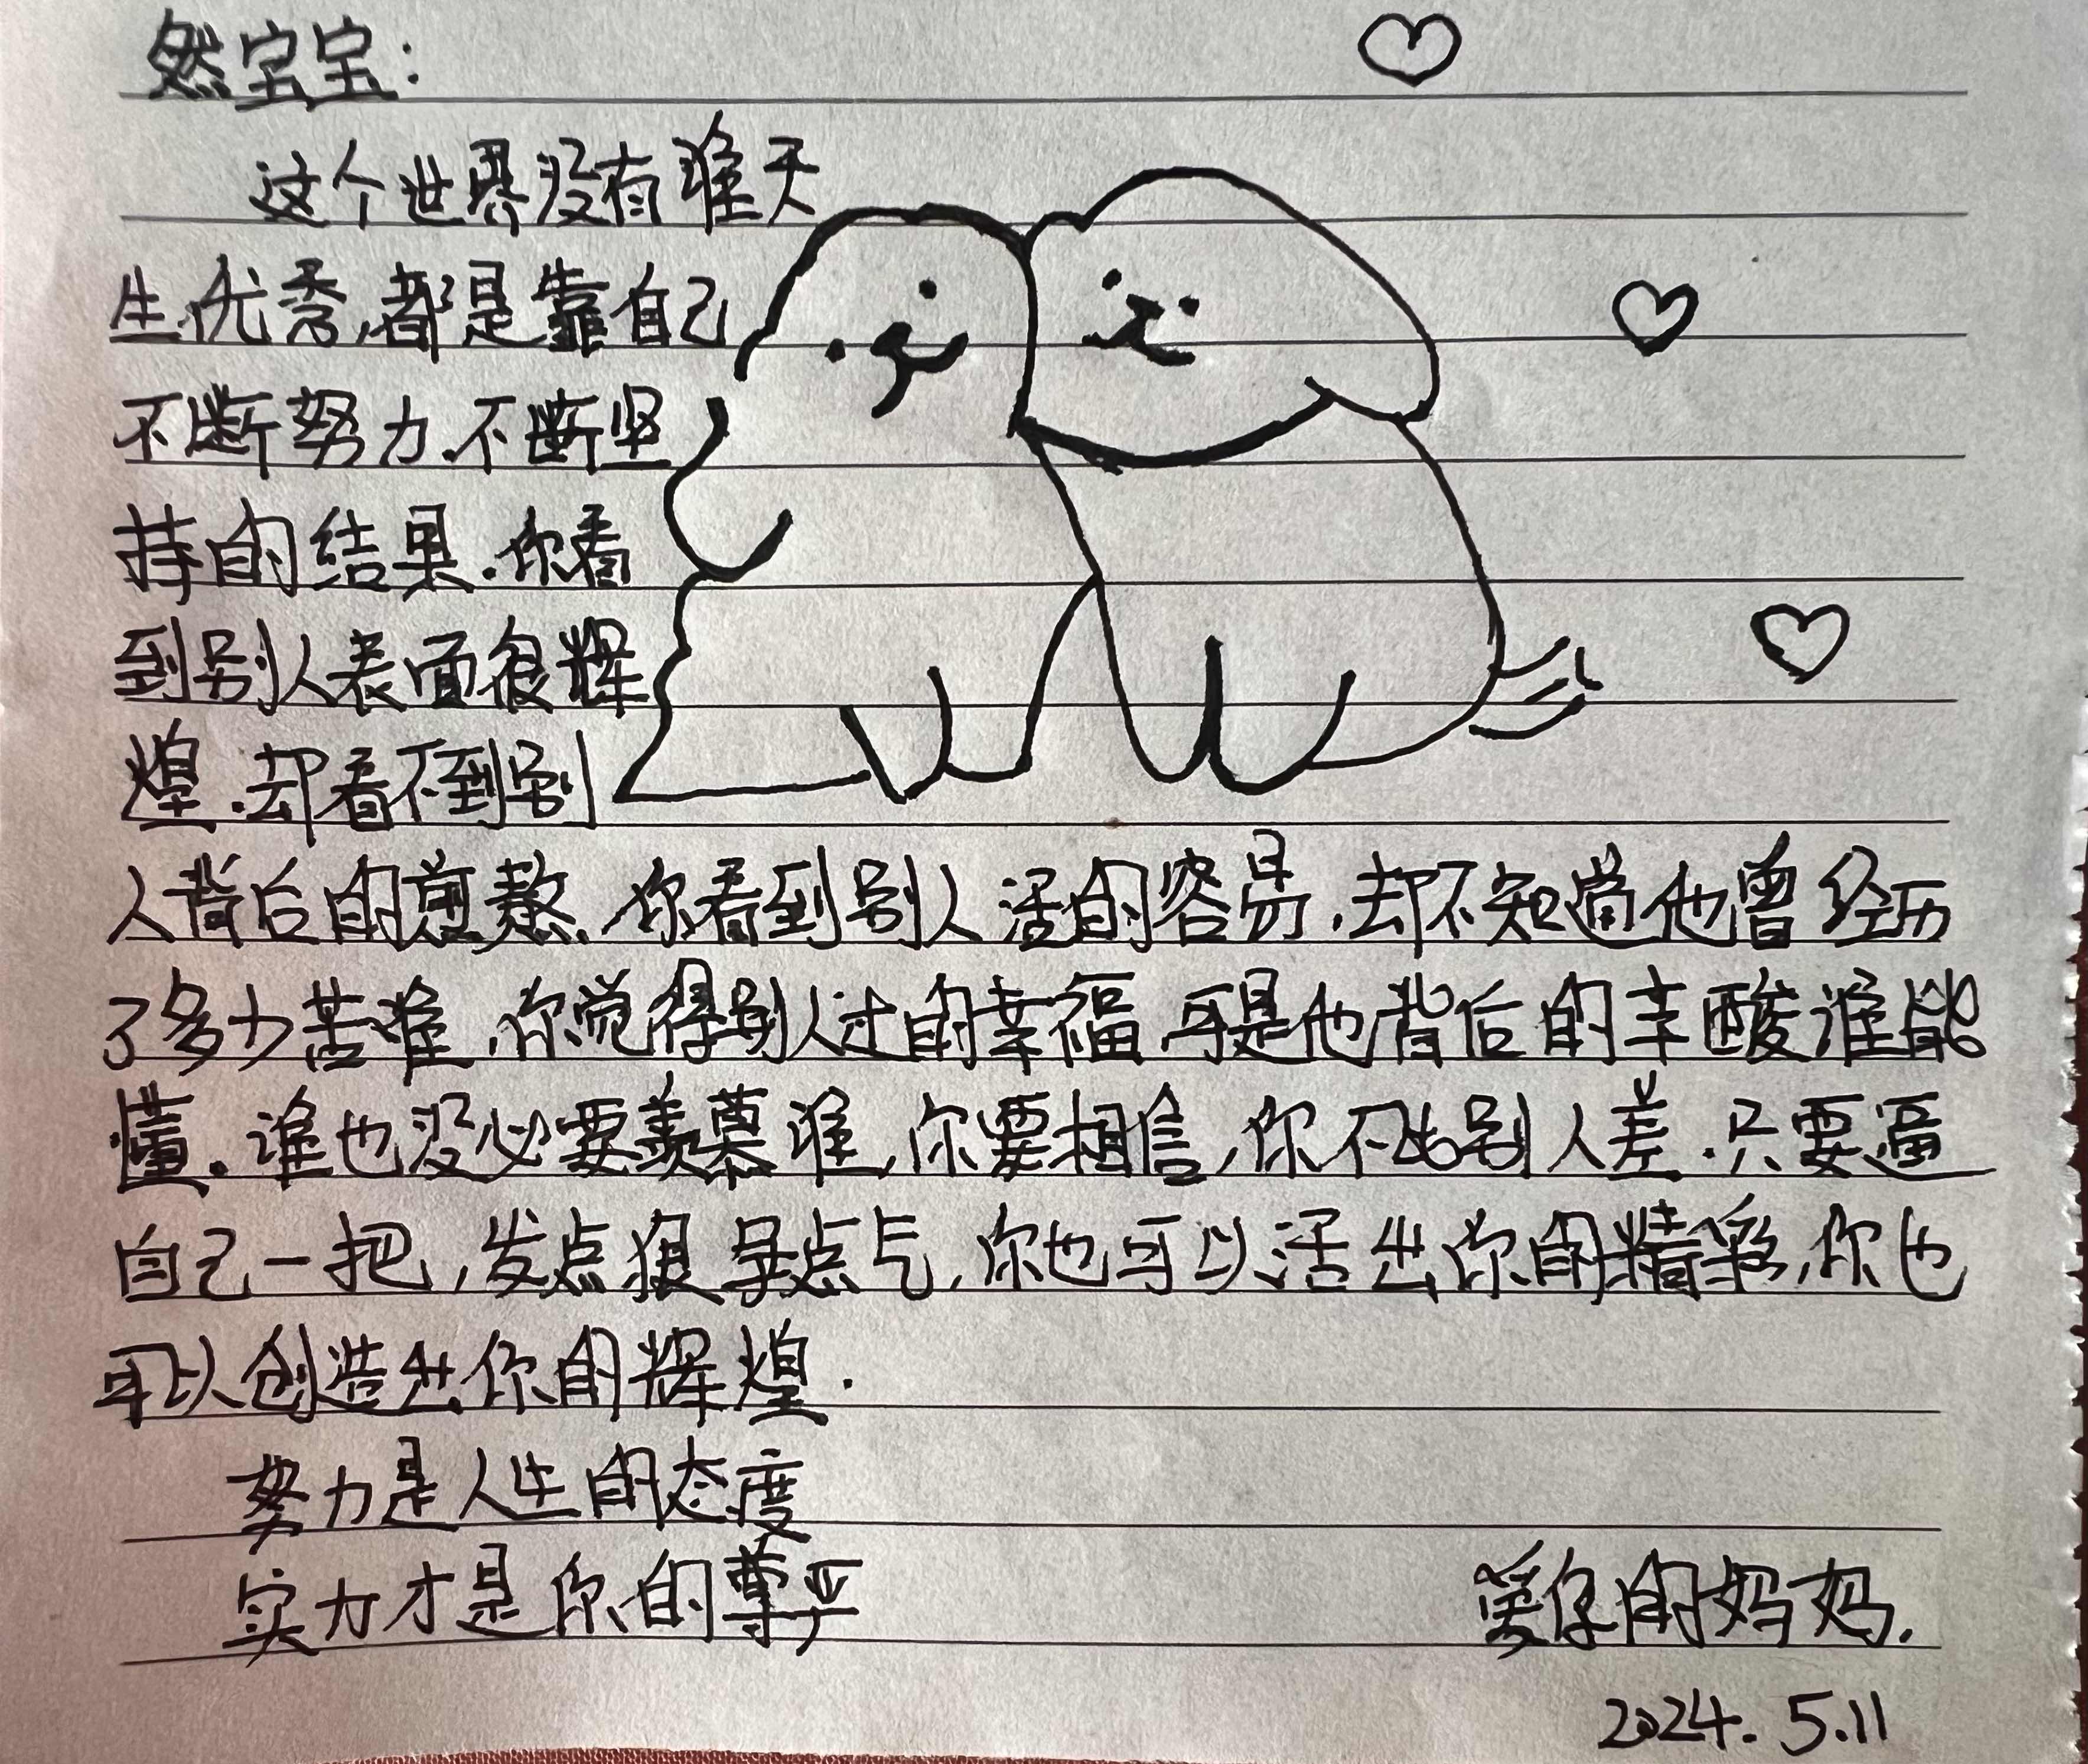 然宝宝：
这个世界没有谁天
生优秀，都是靠自己
不断努力.不断坚
持的结果.你看
到别人表面很辉
煌.却看不到别
人背后的煎熬.你看到别人活的容易.却不知道他曾经历
了多少苦难.你觉得别人过的幸福.可是他背后的辛酸谁能
懂.谁也没必要羡慕谁,你要相信,你不比别人差.只要逼
自己一把,发点狠 争点气,你也可以活出你的精彩,你也
可以创造出你的辉煌.
努力是人生的态度
实力才是你的尊严
爱你的妈妈.
2024.5.11